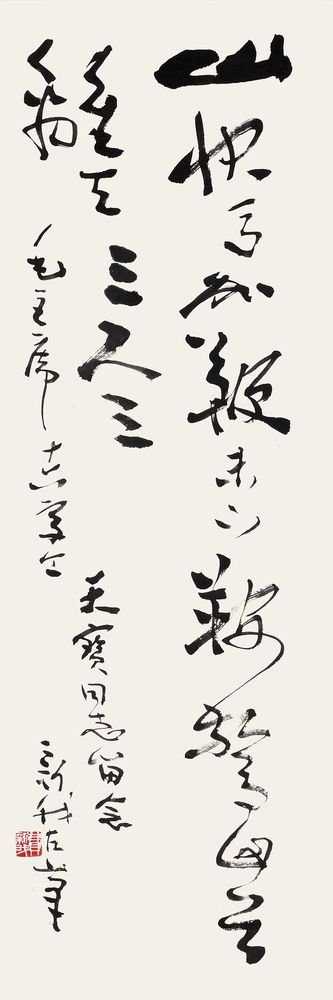 山快馬加鞭未下鞍驚回首
離天三尺三
毛主席十六字令
天寶同志留念
新我左筆